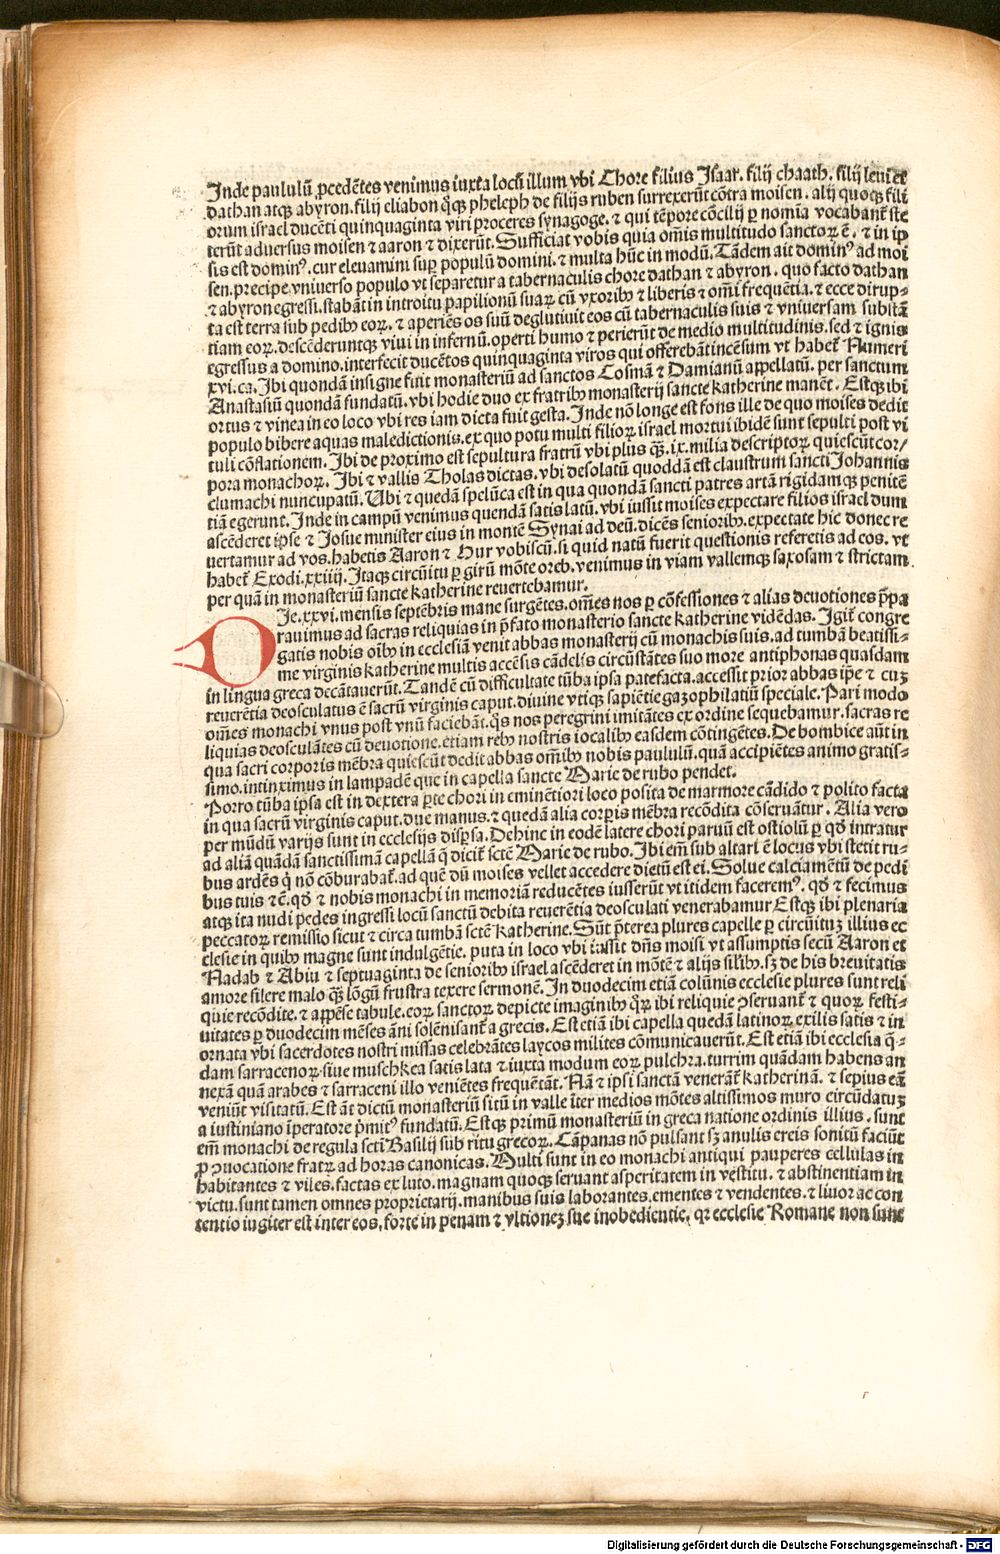 Inde paululū ꝓcedētes venimus iuxta locū illum vbi Chore filius Isaar. filij chaath. filij leui et
dathan atqꝫ abyron. filij eliabon q̄qꝫ pheleph de filijs ruben surrexerūt cōtra moisen. alij quoqꝫ fili
orum israel ducēti quinquaginta viri proceres synagoge. ⁊ qui tēpore cōcilij ꝑ nomia vocabant̄ ste
terūt aduersus moisen ⁊ aaron ⁊ dixerūt. Sufficiat vobis quia om̄is multitudo sanctoꝝ ē. ⁊ in ip
sis est dominꝰ. cur eleuamini suꝑ populū domini. ⁊ multa hūc in modū. Tādem ait dominꝰ ad moi
sen. precipe vniuerso populo vt separetur a tabernaculis chore dathan ⁊ abyron. quo facto dathan
⁊ abyron egressi. stabāt in introitu papilionū suaꝝ cū vxoribꝫ ⁊ liberis ⁊ om̄i frequētia. ⁊ ecce dirup-
ta est terra sub pedibꝫ eoꝝ. ⁊ aperiēs os suū deglutiuit eos cū tabernaculis suis ⁊ vniuersam substā
tiam eoꝝ. descēderuntqꝫ viui in infernū. operti humo ⁊ perierūt de medio multitudinis. sed ⁊ ignis
egressus a domino. interfecit ducētos quinquaginta viros qui offerebāt incēsum vt habet̄ Numeri
xvi. ca. Ibi quondā insigne fuit monasteriū ad sanctos Cosmā ⁊ Damianū appellatū. per sanctum
Anastasiū quondā fundatū. vbi hodie duo ex fratribꝫ monasterij sancte katherine manēt. Estqꝫ ibi
ortus ⁊ vinea in eo loco vbi res iam dicta fuit gesta. Inde nō longe est fons ille de quo moises dedit
populo bibere aquas maledictionis. ex quo potu multi filioꝝ israel mortui ibidē sunt sepulti post vi
tuli cōflationem. Ibi de proximo est sepultura fratrū vbi plus qꝫ̄. ix. milia descriptoꝝ quiescūt cor/
pora monachoꝝ. Ibi ⁊ vallis Tholas dictas. vbi desolatū quoddā est claustrum sancti Johannis
clumachi nuncupatū. Vbi ⁊ quedā spelūca est in qua quondā sancti patres artā rigidamqꝫ penitē
tiā egerunt. Inde in campū venimus quendā satis latū. vbi iussit moises expectare filios israel dum
ascēderet ipse ⁊ Josue minister eius in montē Synai ad deū. dicēs senioribꝫ. expectate hic donec re
uertamur ad vos. habetis Aaron ⁊ Hur vobiscū. si quid natū fuerit questionis referetis ad eos. vt
habet̄ Exodi. xxiiij. Itaqꝫ circūitu ꝑ girū mōte oreb. venimus in viam vallemqꝫ saxosam ⁊ strictam.
per quā in monasteriū sancte katherine reuertebamur.
DIe. xxvi. mensis septēbris mane surgētes. om̄es nos ꝑ cōfessiones ⁊ alias deuotiones p̄pa
rauimus ad sacras reliquias in p̄fato monasterio sancte katherine vidēdas. Igit̄ congre
gatis nobis oībꝫ in ecclesiā venit abbas monasterij cū monachis suis. ad tumbā beatissi-
me virginis katherine multis accēsis cādelis circūstātes suo more antiphonas quasdam
in lingua greca decātauerūt. Tandē cū difficultate tūba ipsa patefacta. accessit prior abbas ip̄e ⁊ cuꝫ
reuerētia deosculatus ē sacrū virginis caput. diuine vtiqꝫ sapiētie gazophilatiū speciale. Pari modo
om̄es monachi vnus post vnū faciebāt. q̄s nos peregrini imitātes ex ordine sequebamur. sacras re
liquias deosculātes cū deuotione. etiam rebꝫ nostris iocalibꝫ easdem cōtingētes. De bombice aūt in
qua sacri corporis mēbra quiescūt dedit abbas om̄ibꝫ nobis paululū. quā accipiētes animo gratis-
simo. intinximus in lampadē que in capella sancte Marie de rubo pendet.
Porro tūba ipsa est in dextera ꝑte chori in eminētiori loco posita de marmore cādido ⁊ polito facta
in qua sacrū virginis caput. due manus. ⁊ quedā alia corꝑis mēbra recōdita cōseruātur. Alia vero
per mūdū varijs sunt in ecclesijs disꝑsa. Dehinc in eodē latere chori paruū est ostiolū ꝑ qd̄ intratur
ad aliā quādā sanctissimā capellā q̄ dicit̄ scte Marie de rubo. Ibi em̄ sub altari ē locus vbi stetit ru-
bus ardēs q̄ nō cōburabat̄. ad quē dū moises vellet accedere dictū est ei. Solue calciamētū de pedi
bus tuis ⁊c̄. qd̄ ⁊ nobis monachi in memoriā reducētes iusserūt vt itidem faceremꝰ. qd̄ ⁊ fecimus
atqꝫ ita nudi pedes ingressi locū sanctū debita reuerētia deosculati venerabamur Estqꝫ ibi plenaria
peccatoꝝ remissio sicut ⁊ circa tumbā sctē katherine. Sūt p̄terea plures capelle ꝑ circūituꝫ illius ec
clesie in quibꝫ magne sunt indulgētie. puta in loco vbi iussit dn̄s moisi vt assumptis secū Aaron et
Nadab ⁊ Abiu ⁊ septuaginta de senioribꝫ israel ascēderet in mōtē ⁊ alijs sil̄ibꝫ. sꝫ de his breuitatis
amore silere malo qꝫ̄ lōgū frustra texere sermonē. In duodecim etiā colūnis ecclesie plures sunt reli
quie recōdite. ⁊ appēse tabule. eoꝝ sanctoꝝ depicte imaginibꝫ q̄ꝝ ibi reliquie ↄseruant̄ ⁊ quoꝝ festi-
uitates ꝑ duodecim mēses āni solēnisant̄ a grecis. Est etiā ibi capella quedā latinoꝝ exilis satis ⁊ in
ornata vbi sacerdotes nostri missas celebrātes laycos milites cōmunicauerūt. Est etiā ibi ecclesia q̄-
dam sarracenoꝝ siue muschkea satis lata ⁊ iuxta modum eoꝝ pulchra. turrim quādam habens an
nexā quā arabes ⁊ sarraceni illo veniētes frequētāt. Nā ⁊ ipsi sanctā venerāt̄ katherinā. ⁊ sepius eā
veniūt visitatū. Est āt dictū monasteriū sitū in valle īter medios mōtes altissimos muro circūdatuꝫ
a iustiniano īperatore p̄mitꝰ fundatū. Estqꝫ primū monasteriū in greca natione ordinis illius. sunt
em̄ monachi de regula scti Basilij sub ritu grecoꝝ. Cāpanas nō pulsant sꝫ anulis ereis sonitū faciūt
ꝓ ↄuocatione fratꝝ ad horas canonicas. Multi sunt in eo monachi antiqui pauperes cellulas in
habitantes ⁊ viles. factas ex luto. magnam quoqꝫ seruant asperitatem in vestitu. ⁊ abstinentiam in
victu. sunt tamen omnes proprietarij. manibus suis laborantes. ementes ⁊ vendentes. ⁊ liuor ac con
tentio iugiter est inter eos, forte in penam ⁊ vltionez sue inobedientie, qꝛ ecclesie Romane non sunt
Digitalisierung gefördert durch die Deutsche Forschungsgemeinschaft - DFG